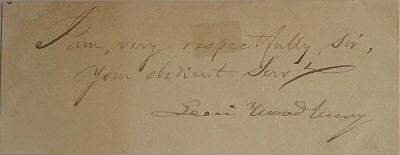 I am, very respectfully, Sir,
Your obedient Serv't
Levi Woodbury